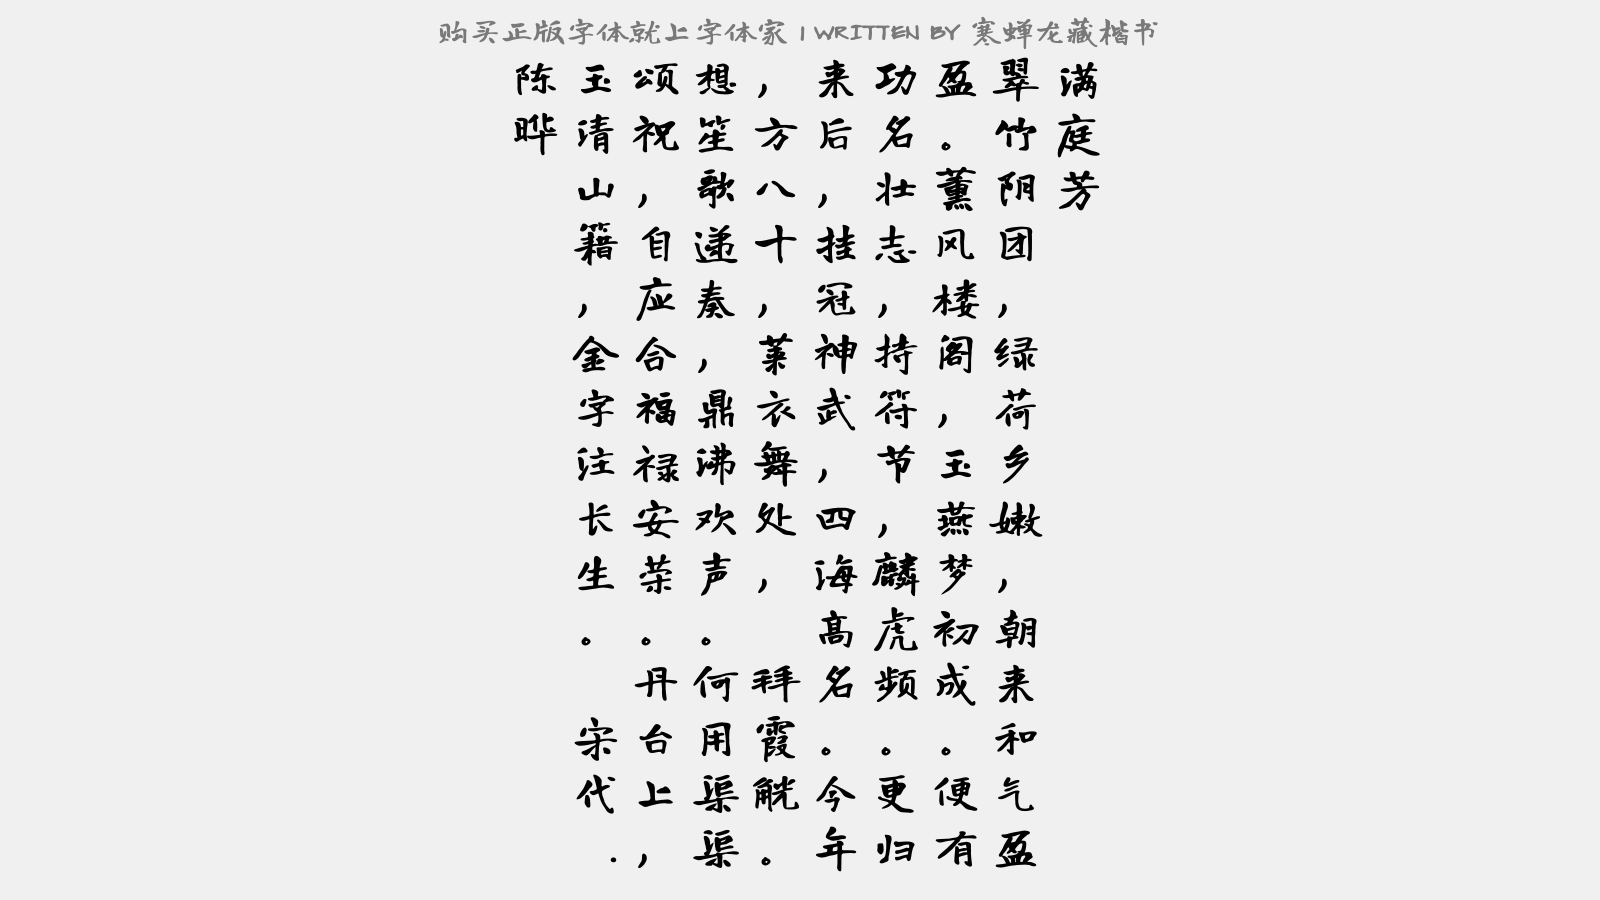 购买正版字体就上字体家 | WRITTEN BY 寒蝉龙藏楷书
满庭芳
翠竹阴团，绿荷乡嫩，朝来和气盈
盈。薰风楼阁，玉燕梦初成。便有
功名壮志，持符节，麟虎频。更归
来后，挂冠神武，四海高名。今年
，方八十，莱衣舞处， 拜霞觥。
想笙歌递奏，鼎沸欢声。何用渠渠
颂祝，自应合福禄安荣。丹台上，
玉清山籍，金字注长生。 宋代·
陈晔